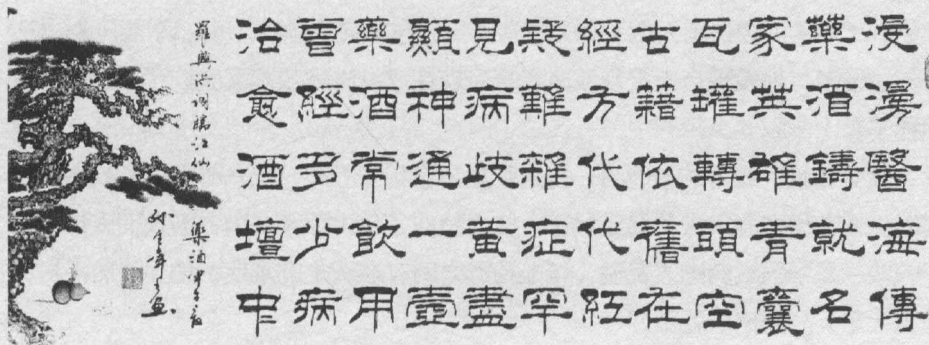 浸漫醫海傳
藥酒鑄就名
家英雄青囊
瓦罐轉頭空
古籍依舊在
經方代代紅
疑難雜症罕
見病歧黃盡
顯神通一壺
藥酒常飲用
曾經多少病
治愈酒壇中
羅興洪詞臨江仙 藥酒